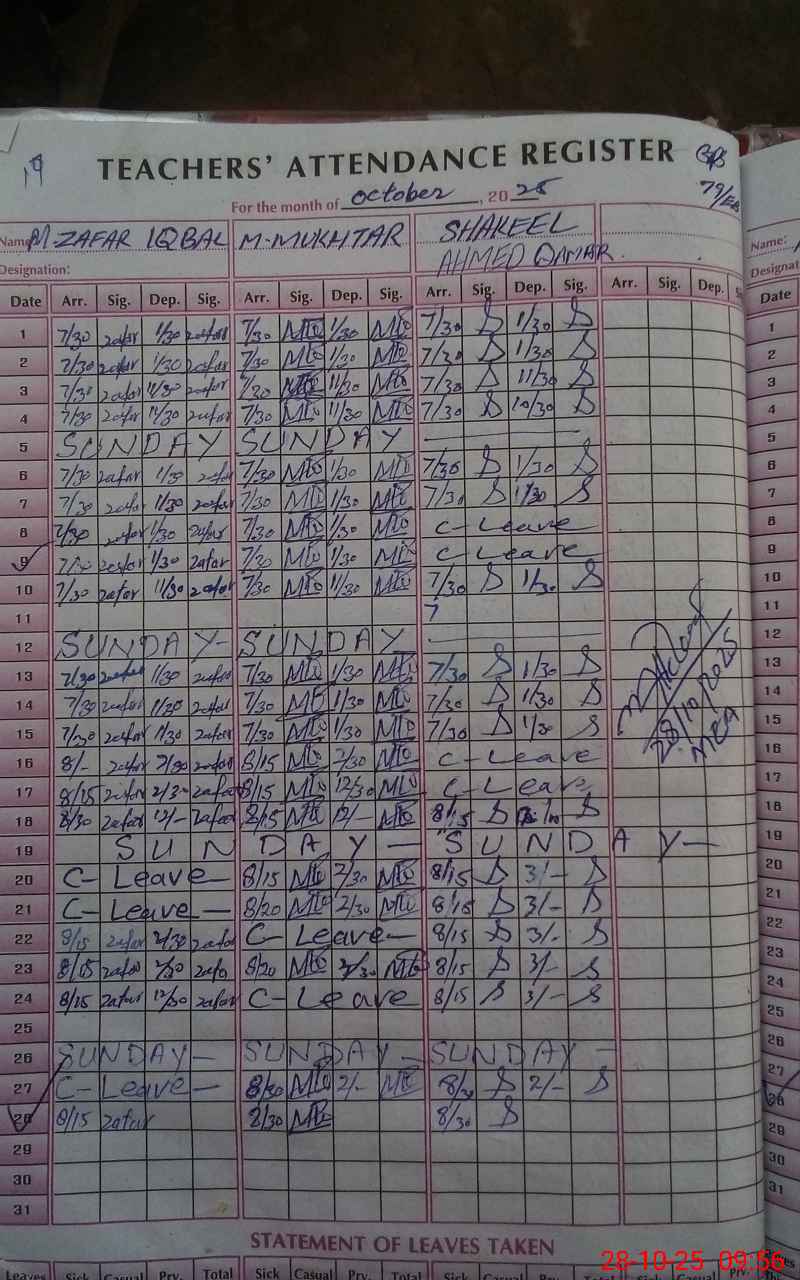 19
TEACHERS' ATTENDANCE REGISTER
79/EB
For the month of October, 2025
Name M-ZAFAR IQBAL M-MUKHTAR SHAKEEL AHMED QAMAR. Name:
Designation: Designat
Date Arr. Sig. Dep. Sig. Arr. Sig. Dep. Sig. Arr. Sig. Dep. Sig. Arr. Sig. Dep. Date
1 7/30 zafar 1/30 zafar 7/30 1/30 7/30 S 1/30 S 1
2 7/30 zafar 1/30 zafar 7/30 1/30 7/30 S 1/30 S 2
3 7/30 zafar 11/30 zafar 7/30 11/30 7/30 S 11/30 S 3
4 7/30 zafar 11/30 zafar 7/30 11/30 7/30 S 10/30 S 4
5 SUNDAY SUNDAY 5
6 7/30 zafar 1/30 zafar 7/30 1/30 7/30 S 1/30 S 6
7 7/30 zafar 1/30 zafar 7/30 1/30 7/30 S 1/30 S 7
8 7/30 zafar 1/30 zafar 7/30 1/30 C-Leave 8
9 7/30 zafar 1/30 zafar 7/30 1/30 C-Leave 9
10 7/30 zafar 11/30 zafar 7/30 11/30 7/30 S 11/30 S 10
11 7 11
12 SUNDAY- SUNDAY 12
13 7/30 zafar 1/30 zafar 7/30 1/30 7/30 S 1/30 S 13
14 7/30 zafar 1/30 zafar 7/30 1/30 7/30 S 1/30 S 14
15 7/30 zafar 1/30 zafar 7/30 1/30 7/30 S 1/30 S 15
28/10/2025
MEA
16 8/- zafar 2/30 zafar 8/15 2/30 C-Leave 16
17 8/15 zafar 2/30 zafar 8/15 12/30 C-Leave 17
18 8/30 zafar 12/- zafar 8/15 12/- 8/15 S S 18
19 SUNDAY - SUNDAY- 19
20 C-Leave- 8/15 2/30 8/15 S 3/- S 20
21 C-Leave- 8/20 2/30 8/15 S 3/- S 21
22 8/15 zafar 2/30 zafar C-Leave- 8/15 S 3/- S 22
23 8/15 zafar 2/30 zafa 8/20 2/30 8/15 S 3/- S 23
24 8/15 zafar 12/30 zafar C-Leave 8/15 S 3/- S 24
25 25
26 SUNDAY- SUNDAY- SUNDAY- 26
27 C-Leave- 8/30 2/- S 2/- S 27
28 8/15 zafar 8/30 8/30 S 28
29 29
30 30
31 31
STATEMENT OF LEAVES TAKEN
28-10-25 09:56
Leaves Sick Casual Prv. Total Sick Casual Prv. Total Sick Casual Prv. Total